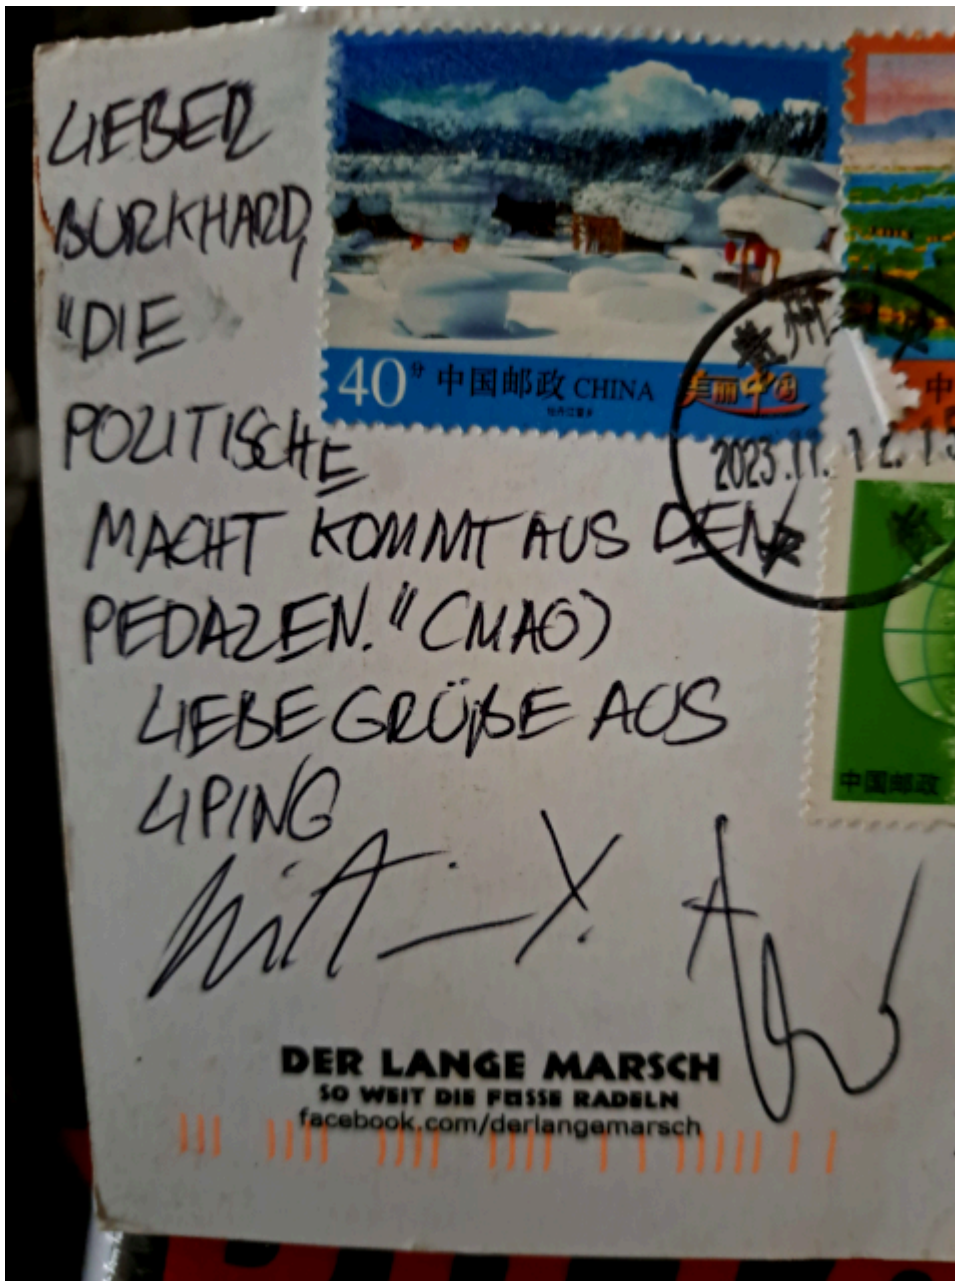 LIEBER
BURKHARD,
"DIE
POLITISCHE
MACHT KOMMT AUS DEN
PEDALEN." (MAO)
LIEBE GRÜßE AUS
LIPING
40分 中国邮政 CHINA 美丽中国
牡丹江雪乡
州
2023.11.12.1
中
中国邮政
DER LANGE MARSCH
SO WEIT DIE FÜSSE RADELN
facebook.com/derlangemarsch